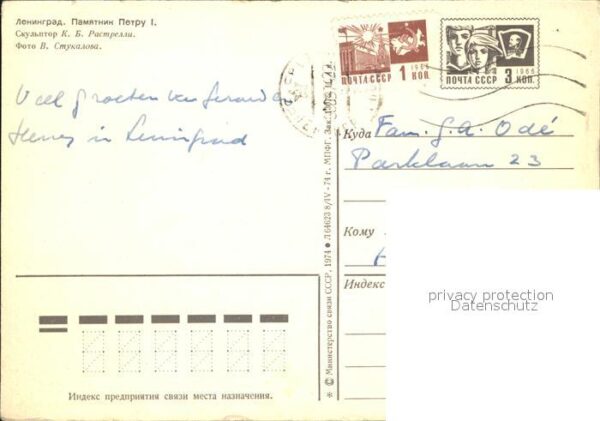 Ленинград. Памятник Петру I.
Скульптор К. Б. Растрелли.
Фото В. Стукалова.
1966
ПОЧТА СССР 1 КОП.
1966
ПОЧТА СССР 3 КОП.
Veel groeten van
in Leningrad
Куда Fam. G.A. Odé
Parklaan 23
Кому
Индекс
privacy protection
Datenschutz
* © Министерство связи СССР, 1974 ● Л 64623 8/IV - 74 г. МПФГ. Зак.
Индекс предприятия связи места назначения.